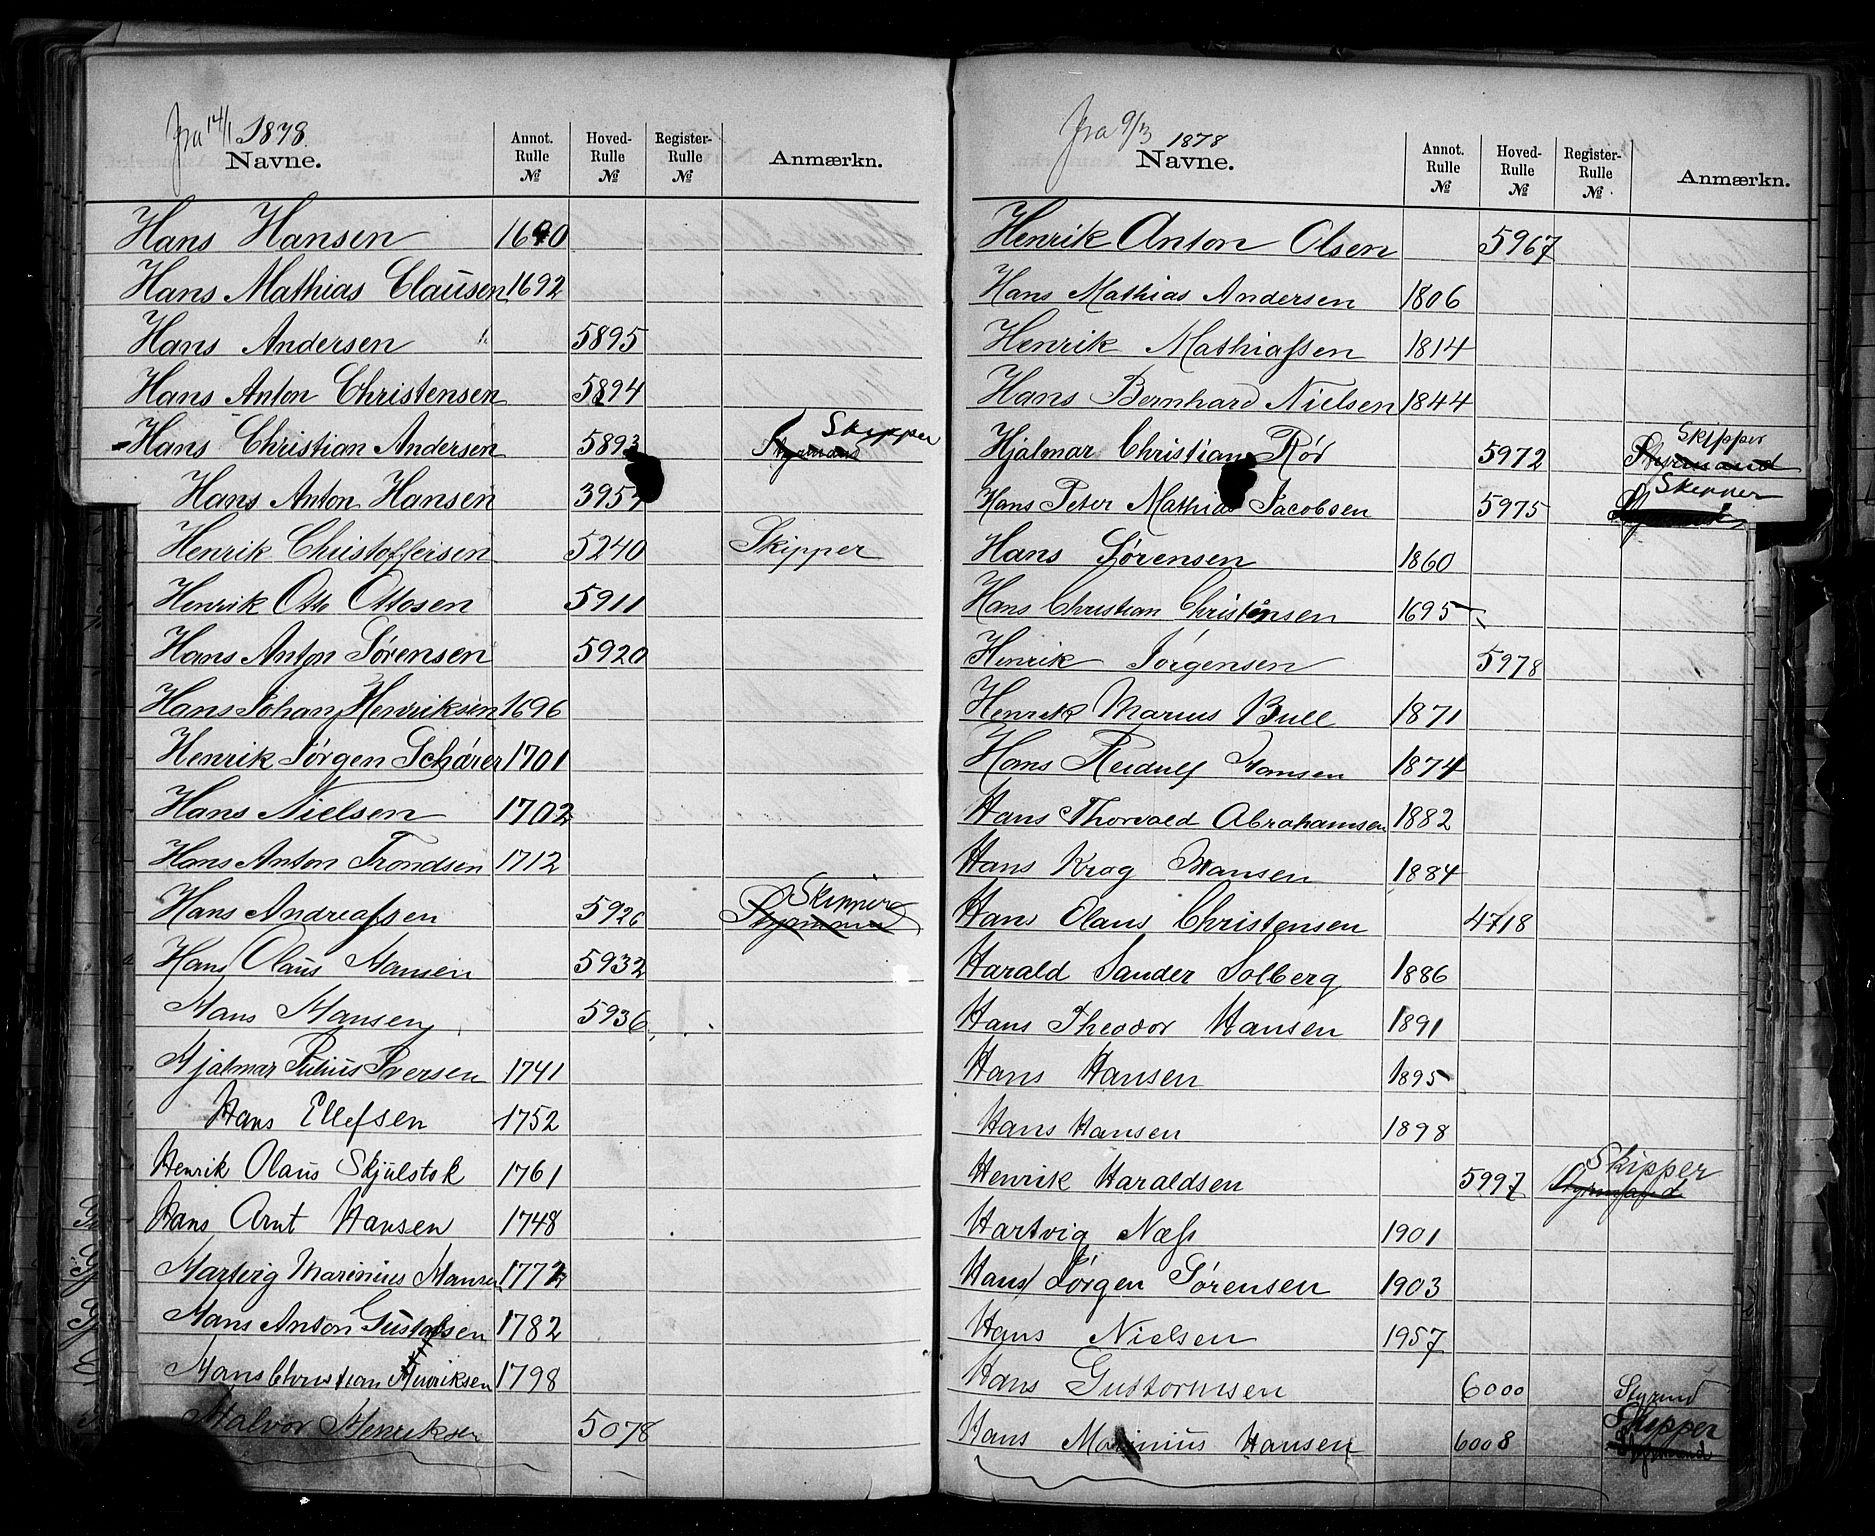 fra 14/1 1878.
Navne. Annot. Rulle № Hoved-Rulle № Register-Rulle № Anmærkn.
Hans Hansen 1690
Hans Mathias Clausen 1692
Hans Andersen 5895
Hans Anton Christensen 5894
Hans Christian Andersen 5893 Styrmand Skipper
Hans Anton Hansen 3957
Henrik Christoffersen 5240 Skipper
Henrik Otto Ottosen 5911
Hans Anton Sørensen 5920
Hans Johan Henriksen 1696
Henrik Jørgen Schärer 1701
Hans Nielsen 1702
Hans Anton Trondsen 1712
Hans Andreassen 5926 Styrmand Skipper
Hans Olaus Hansen 5932
Hans Hansen 5936
Hjalmar Julius Iversen 1741
Hans Ellefsen 1752
Henrik Olaus Skjulstok 1761
Hans Arnt Hansen 1748
Hartvig Marinius Hansen 1772
Hans Anton Gustafsen 1782
Hans Christian Henriksen 1798
Halvor Henriksen 5078
fra 9/3 1878
Navne. Annot. Rulle № Hoved-Rulle № Register-Rulle № Anmærkn.
Henrik Anton Olsen 5967
Hans Mathias Andersen 1806
Henrik Mathiassen 1814
Hans Bernhard Nielsen 1844
Hjalmar Christian Rør 5972 Styrmand Skipper
Hans Peter Mathias Jacobsen 5975 Styrmand Skipper
Hans Sørensen 1860
Hans Christian Christensen 1695
Henrik Jørgensen 5978
Henrik Marius Bull 1871
Hans Reidulf Hansen 1874
Hans Thorvald Abrahamsen 1882
Hans Krog Hansen 1884
Hans Olaus Christensen 4718
Harald Sander Solberg 1886
Hans Theodor Hansen 1891
Hans Hansen 1895
Hans Hansen 1898
Henrik Haraldsen 5997 Styrmand Skipper
Hartvig Næss 1901
Hans Jørgen Sørensen 1903
Hans Nielsen 1957
Hans Guttormsen 6000 Styrmd
Hans Marinius Hansen 6008 Skipper Styrmand